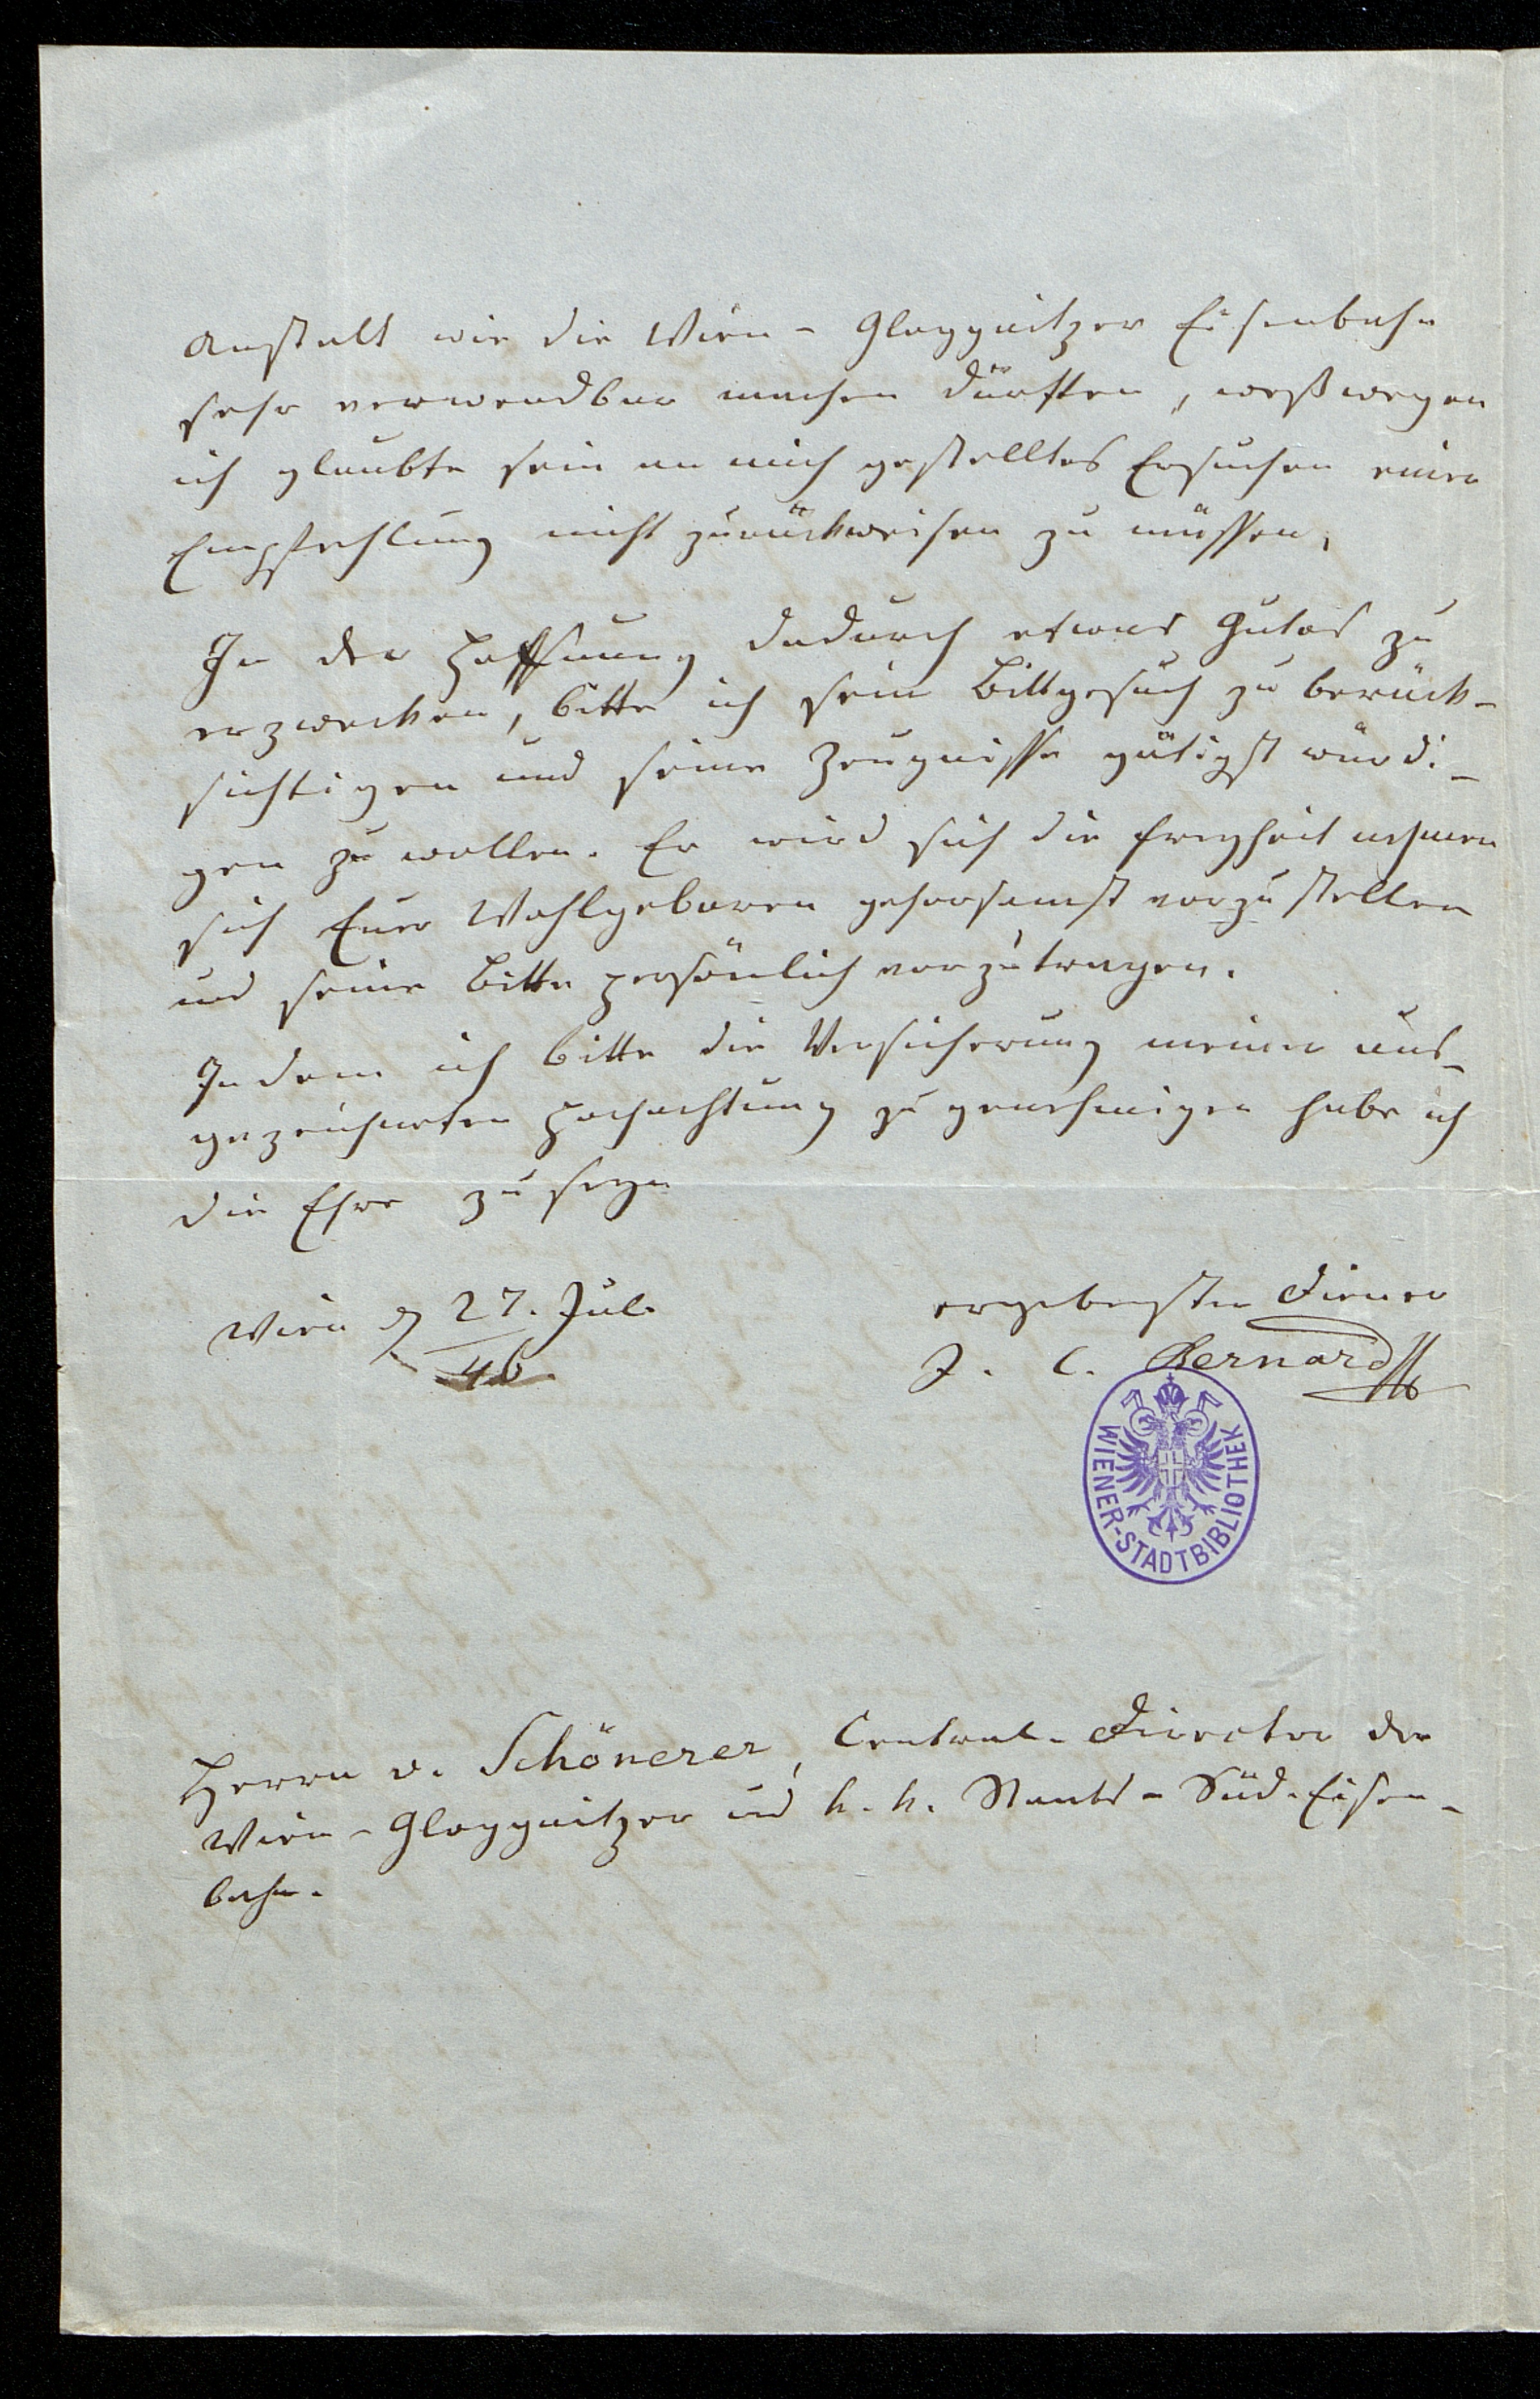 Anstalt wie die Wien-Gloggnitzer Eisenbahn
sehr verwendbar machen dürften, weßwegen
ich glaubte sein an mich gestelltes Ersuchen einer
Empfehlung nicht zurückweisen zu müssen.
In der Hoffnung dadurch etwas Gutes zu
erzwecken, bitte ich sein Bittgesuch zu berück-
sichtigen und seine Zeugnisse gütigst würdi-
gen zu wollen. Er wird sich die Freyheit nehmen
sich Euer Wohlgeboren gehorsamst vorzustellen
und seine Bitte persönlich vorzutragen.
Indem ich bitte die Versicherung meiner aus-
gezeichneten Hochachtung zu genehmigen habe ich
die Ehre zu seyn
ergebenster Diener
Wien d 27. Jul.
46.
J. C. Bernard
WIENER-STADTBIBLIOTHEK
Herrn v. Schönerer, Central-Director der
Wien-Gloggnitzer und k. k. Staats-Süd-Eisen-
bahn.